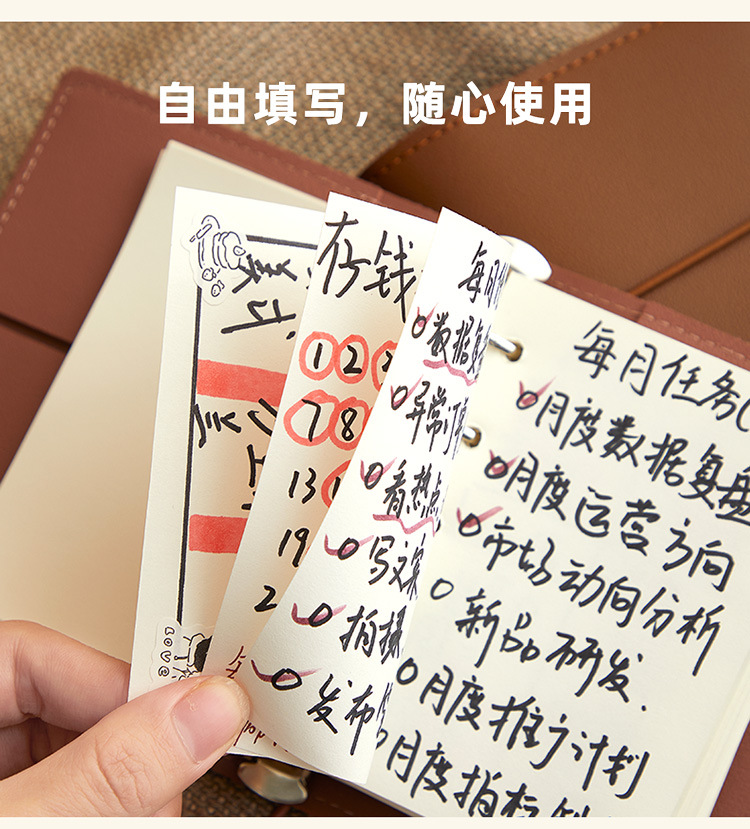 自由填写，随心使用
存钱
1 2
7 8
13 1
19
2
每月
数据复
异常订
看热点
写文案
拍摄
发布
每月任务
月度数据复盘
月度运营方向
市场动向分析
新品研发.
月度推广计划
月度指标
LOVE